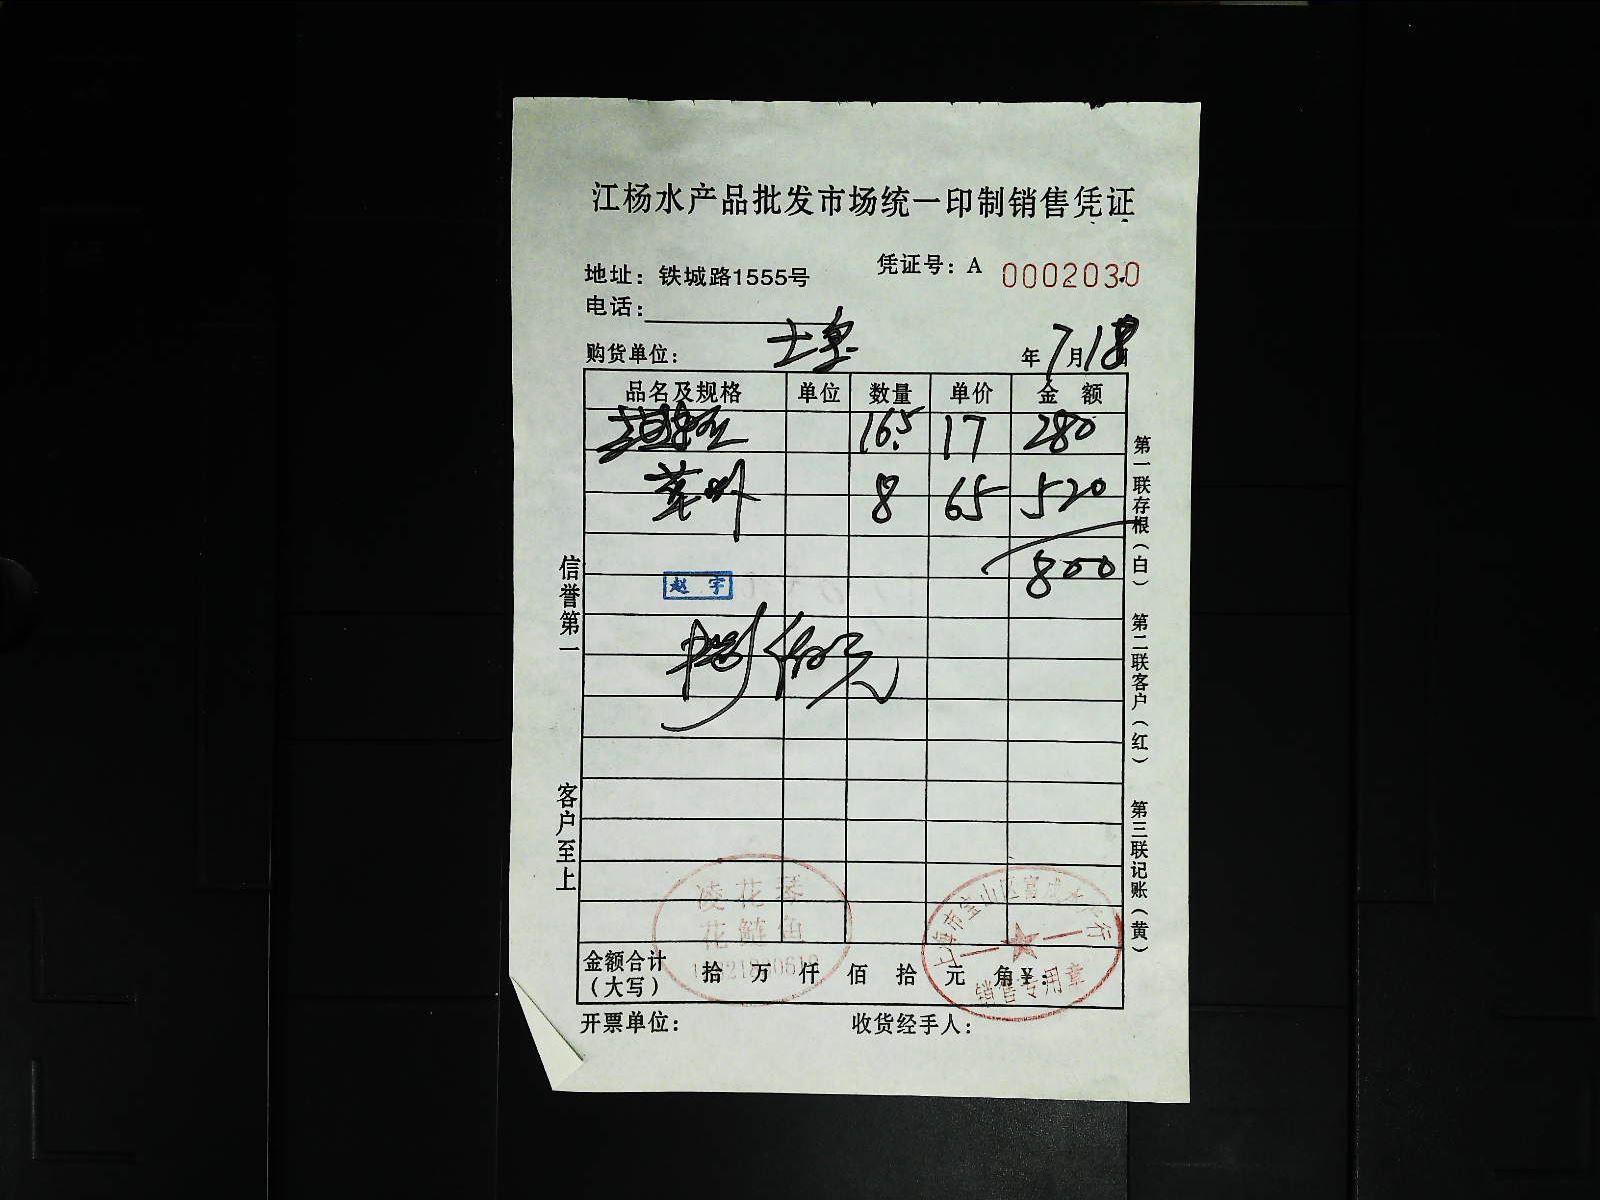 江杨水产品批发市场统一印制销售凭证
凭证号：A 0002030
地址：铁城路1555号
电话：
购货单位：
年7月18日
品名及规格 单位 数量 单价 金额
16.5 17 280
8 65 520
800
赵宇
捌佰元
信誉第一
客户至上
第一联存根（白）
第二联客户（红）
第三联记账（黄）
凌花琴
花鲢鱼
上海市宝山区富成水产行
销售专用章
金额合计（大写） 拾 万 仟 佰 拾 元 角 ¥：
开票单位： 收货经手人：